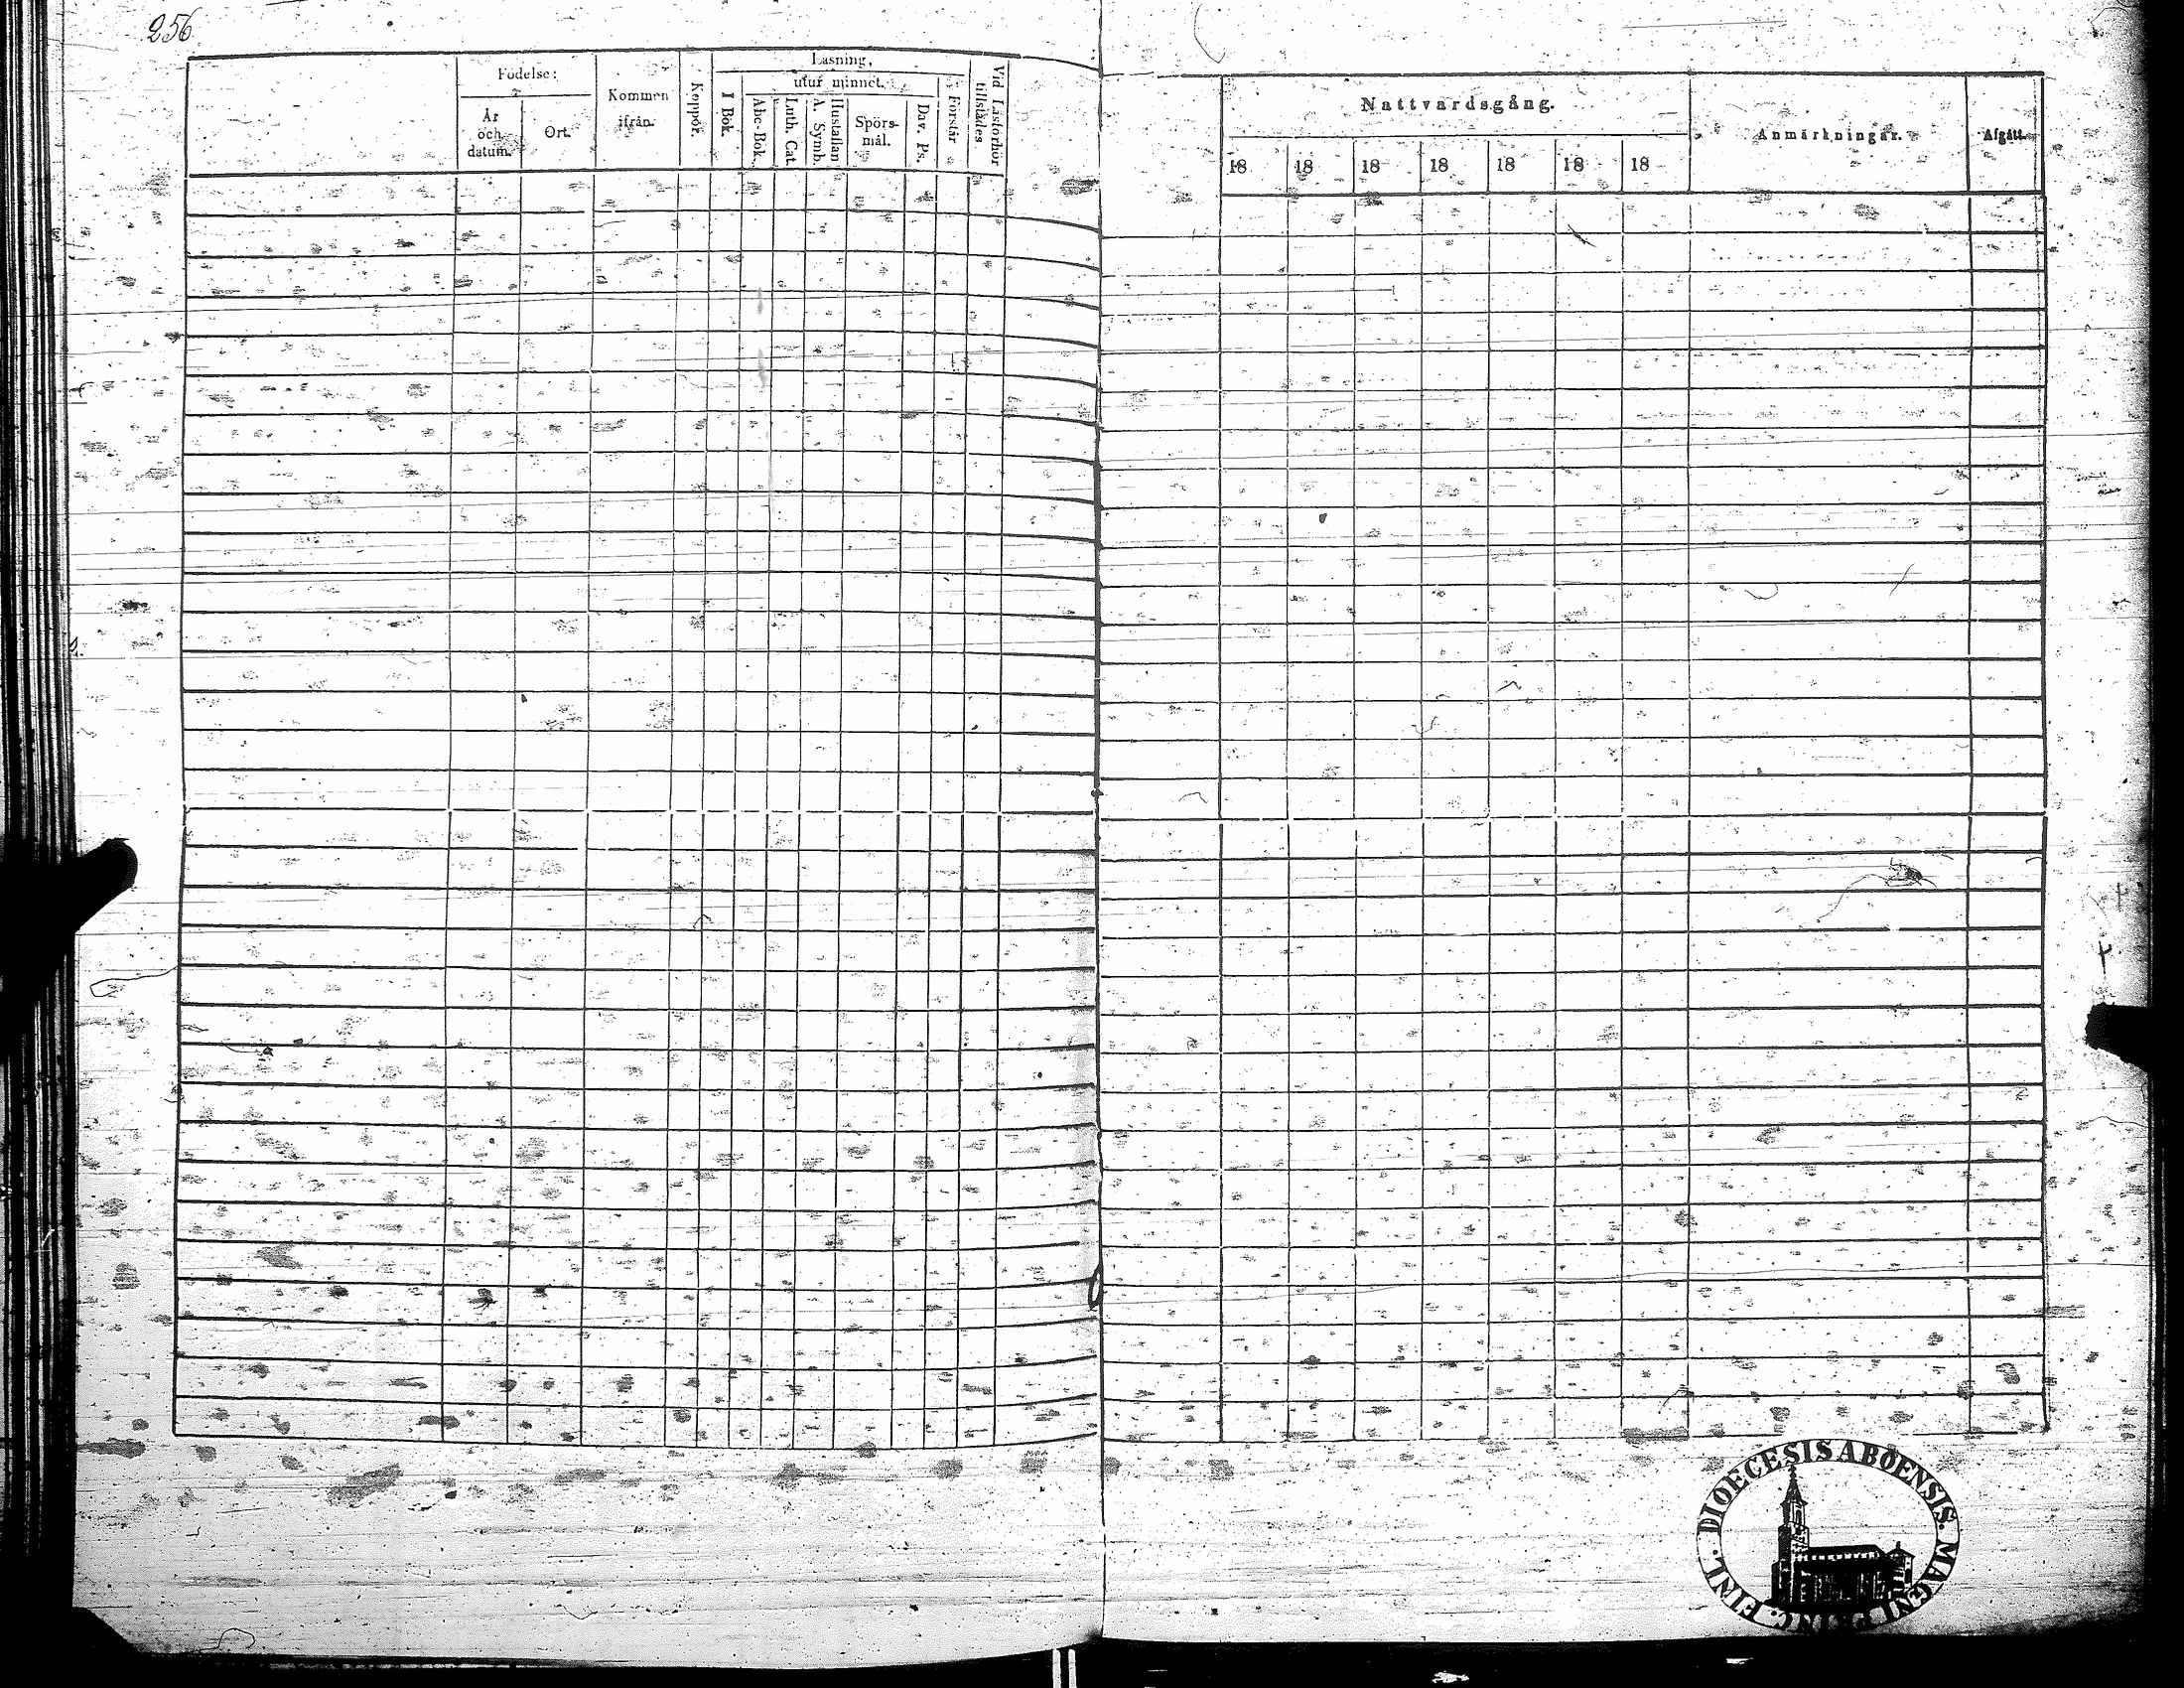 256
Läsning,
Födelse:
utur minnet.
Kommen
ifrån.
År
och
datum.
Ort.
Koppor.
I Bok.
Abc-Bok.
Luth. Cat.
Hustaflan
A. Symb.
Spörs-
mål.
Dav. Ps.
Förstår
Vid Läsförhör
tillstädes
Nattvardsgång.
Anmärkningar.
Afgått.
18 18 18 18 18 18 18
DIOECESIS ABOENSIS. MAGNI PRINC. FINL.